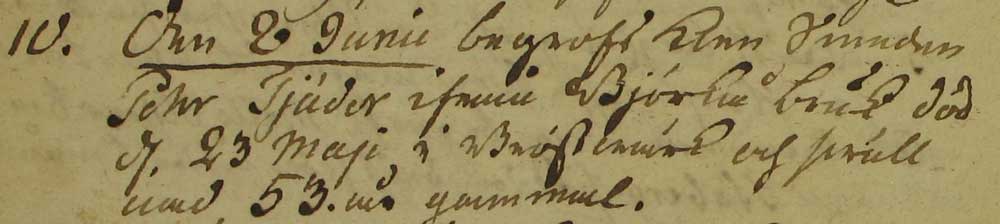 10. Den 2 Junii begrofs Klen Smeden
Pehr Tjäder ifrån Björkå bruk död
d. 23 Maji i Bröstwärk och håll
med 53. år gammal.